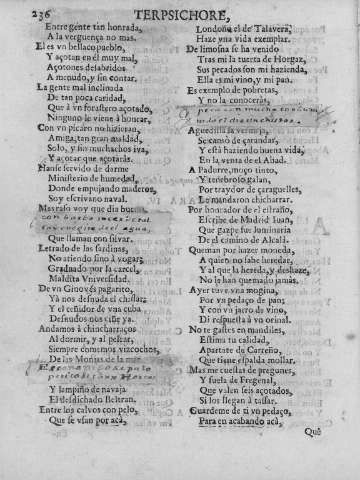 236 TERPSICHORE,
Entre gente tan honrada,
A la verguença no mas.
El es vn bellaco pueblo,
Y açotan en el muy mal,
Açotones desabridos
A menudo, y sin contar.
La gente mal inclinada
De tan poca caridad,
Que à vn forastero açotado,
Ninguno le viene à honcar,
Con vn picaro no hizieran,
Amiga, tan gran maldad,
Solo, y sin muchachos iva,
Y açotar que açotaràs.
Hanse servido de darme
Ministerio de humedad,
Donde empujando maderos,
Soy escrivano naval.
Mas raso voy que dia bueno
con
del agua,
Que llaman con silvar.
Letrado de las sardinas,
No atiendo sino à vogar;
Graduado por la carcel,
Maldita Vniversidad.
De vn Ginovès pagarito,
Yà nos desnuda el chislar;
Y el ceñidor de vna cuba
Desnudos nos ciñe ya.
Andamos à chincharraços
Al dormir, y al pelear,
Siempre comemos vizcochos,
De las Monjas de la mar.
Y lampiño de navaja
El desdichado Beltran.
Entre los calvos con pelo,
Que se vsan por acà,
Londoño el de Talavera,
Haze vna vida exemplar.
De limosna se ha venido
Tras mi la tuerta de Horgaz,
Sus pecados son mi hazienda,
Ella es mi vino, y mi pan.
Es exemplo de pobretas,
Y no la conoceràs,
Aguedilla la vermeja,
Se cansò de carandar,
Y està haziendo buena vida,
En la venta de el Abad.
A Padurre, moço tinto,
Y tenebroso galan,
Por traydor de çaraguelles,
Le mandaron chicharrar.
Por honrador de el estraño,
Escrive de Madrid Iuan,
Que gazpe sus luminaria
De el camino de Alcalà.
Queman por hazer moneda,
A quien no sabe heredar,
Y al que la hereda, y deshaze,
No le han quemado jamàs.
Ayer tuve vna mogina,
Por vn pedaço de pan;
Y con vn jarro de vino,
Dì respuesta à vn orinal.
No te gastes en mandiles,
Estima tu calidad,
Apartate de Carreño,
Que tiene espalda mollar.
Mas me cuestas de pregones,
Y suela de Fregenal,
Que valen seis açotados,
Si los llegan à tassar.
Guardeme de ti vn pedaço,
Para en acabando acà,
Quê